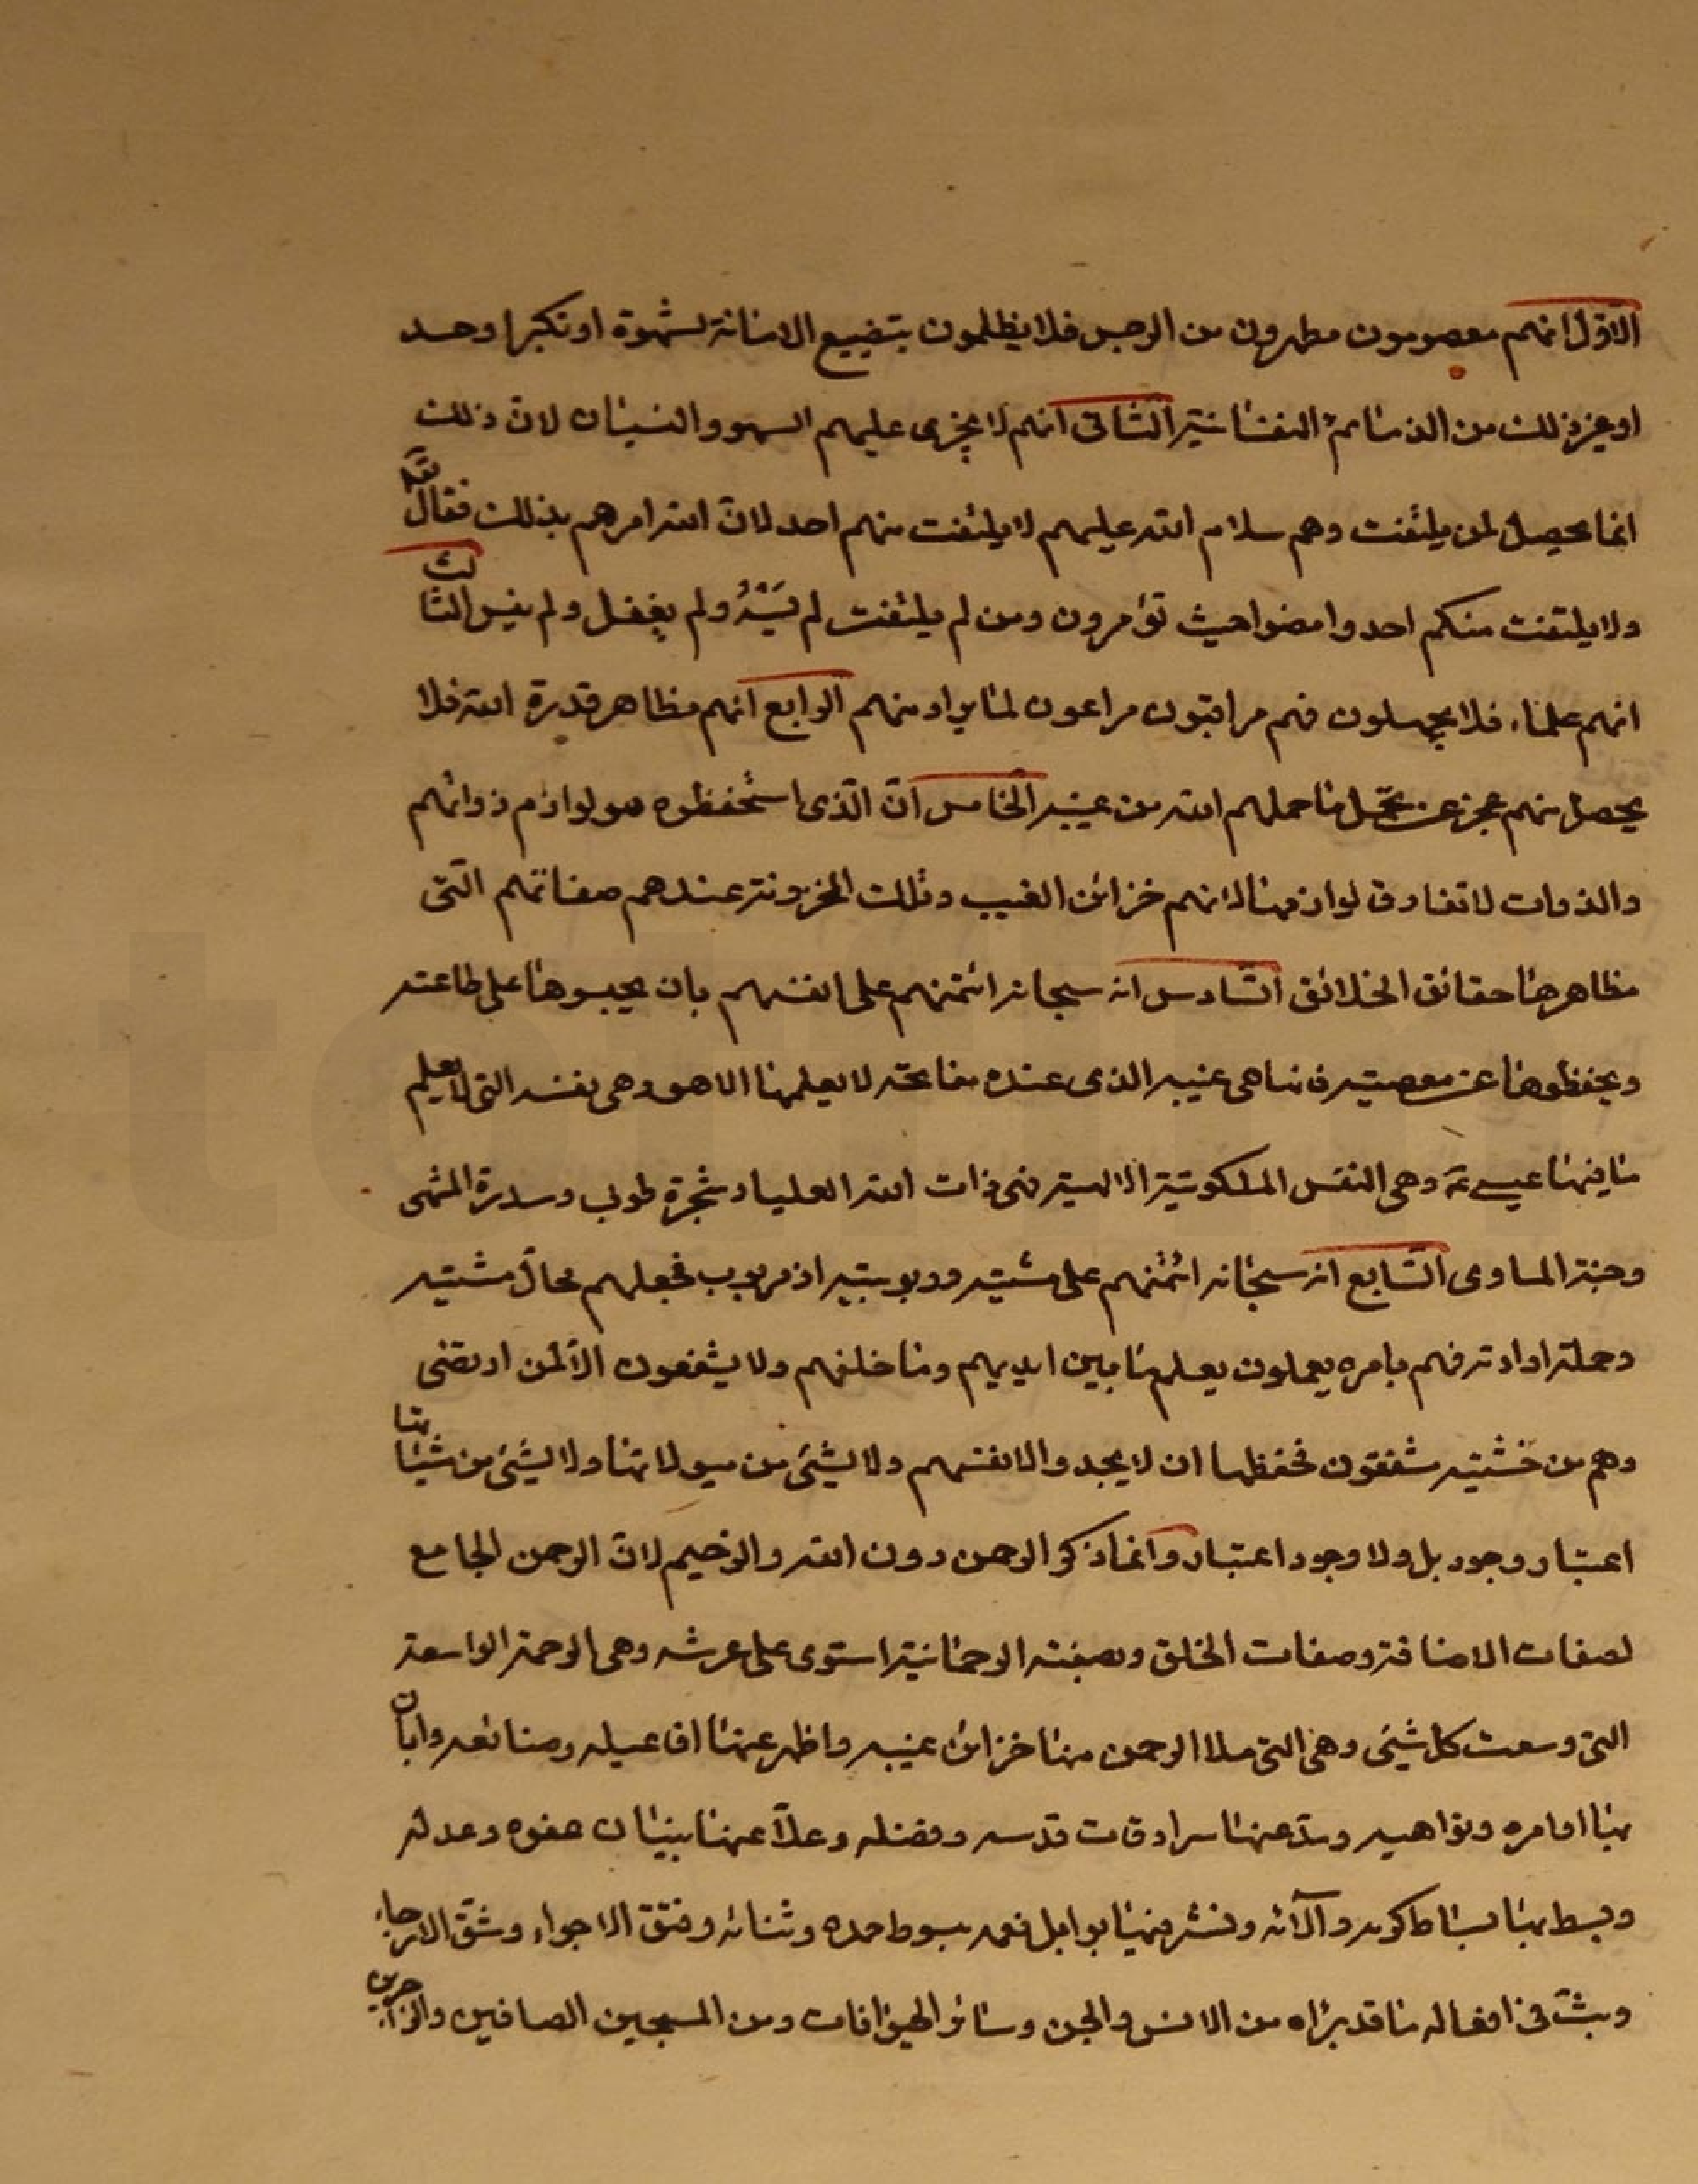 الاوّل انهم معصومون مطهرون من الرجس فلا يظلمون بتضييع الامانة لشهوة او تكبر او حسد
او غير ذلك من الذمائم النفسانية الثانى انهم لا يجرى عليهم السهو والنسيان لانّ ذلك
انما يحصل لمن يلتفت وهم سلام الله عليهم لا يلتفت منهم احد لانّ الله امرهم بذلك فقال تعالى
ولا يلتفت منكم احد وامضوا حيث تؤمرون ومن لم يلتفت لم يَسْهُ ولم يغفل ولم ينس الثالث
انهم علماء فلا يجهلون فهم مراقبون مراعون لما يراد منهم الرابع انهم مظاهر قدرة الله فلا
يحصل منهم عجز عن تحمّل ما حملهم الله من غيبه الخامس انّ الّذى استحفظوه هو لوازم ذواتهم
والذوات لا تفارق لوازمها لانهم خزائن الغيب وتلك المخزونة عندهم صفاتهم التى
مظاهرها حقائق الخلائق السّادس انه سبحانه ائتمنهم على انفسهم بان يحبسوها على طاعته
ويحفظوها عن معصيته فانها هى غيبه الذى عنده مفاتحه لا يعلمها الا هو وهى نفسه التى لا يعلم
ما فيها عيسى ع وهى النفس الملكوتية الالهية فهى ذات الله العليا وشجرة طوبى وسدرة المنتهى
وجنة الماوى السّابع انه سبحانه ائتمنهم على مشيته وربوبيته اذ مربوب فجعلهم محالّ مشيته
وحملة ارادته فهم بامره يعملون يعلم ما بين ايديهم وما خلفهم ولا يشفعون الا لمن ارتضى
وهم من خشيته مشفقون فحفظها ان لا يجدوا لانفسهم ولا لشئ من ميولاتها ولا لشئ من شيئاتها
اعتبار وجود بل ولا وجود اعتبار وانما ذكر الرحمن دون الله والرحيم لانّ الرحمن الجامع
لصفات الاضافة وصفات الخلق وبصفته الرحمانية استوى على عرشه وهى الرحمة الواسعة
التى وسعت كل شئ وهى التى ملا الرحمن منها خزائن غيبه واظهر عنها افاعيله وصنائعه وابان
بها اوامره ونواهيه ومدّ عنها سرادقات قدسه وفضله وعلّا عنها بنيان عفوه وعدله
وبسط بها بساط كرمه وآلائه ونشر منها بوابل نعمه بسوط حمده وثنائه وفتق الاجواء وشق الارجاء
وبثّ فى افعاله ما قد برأه من الانس والجن وسائر الحيوانات ومن المسبحين الصافين والزاجرين